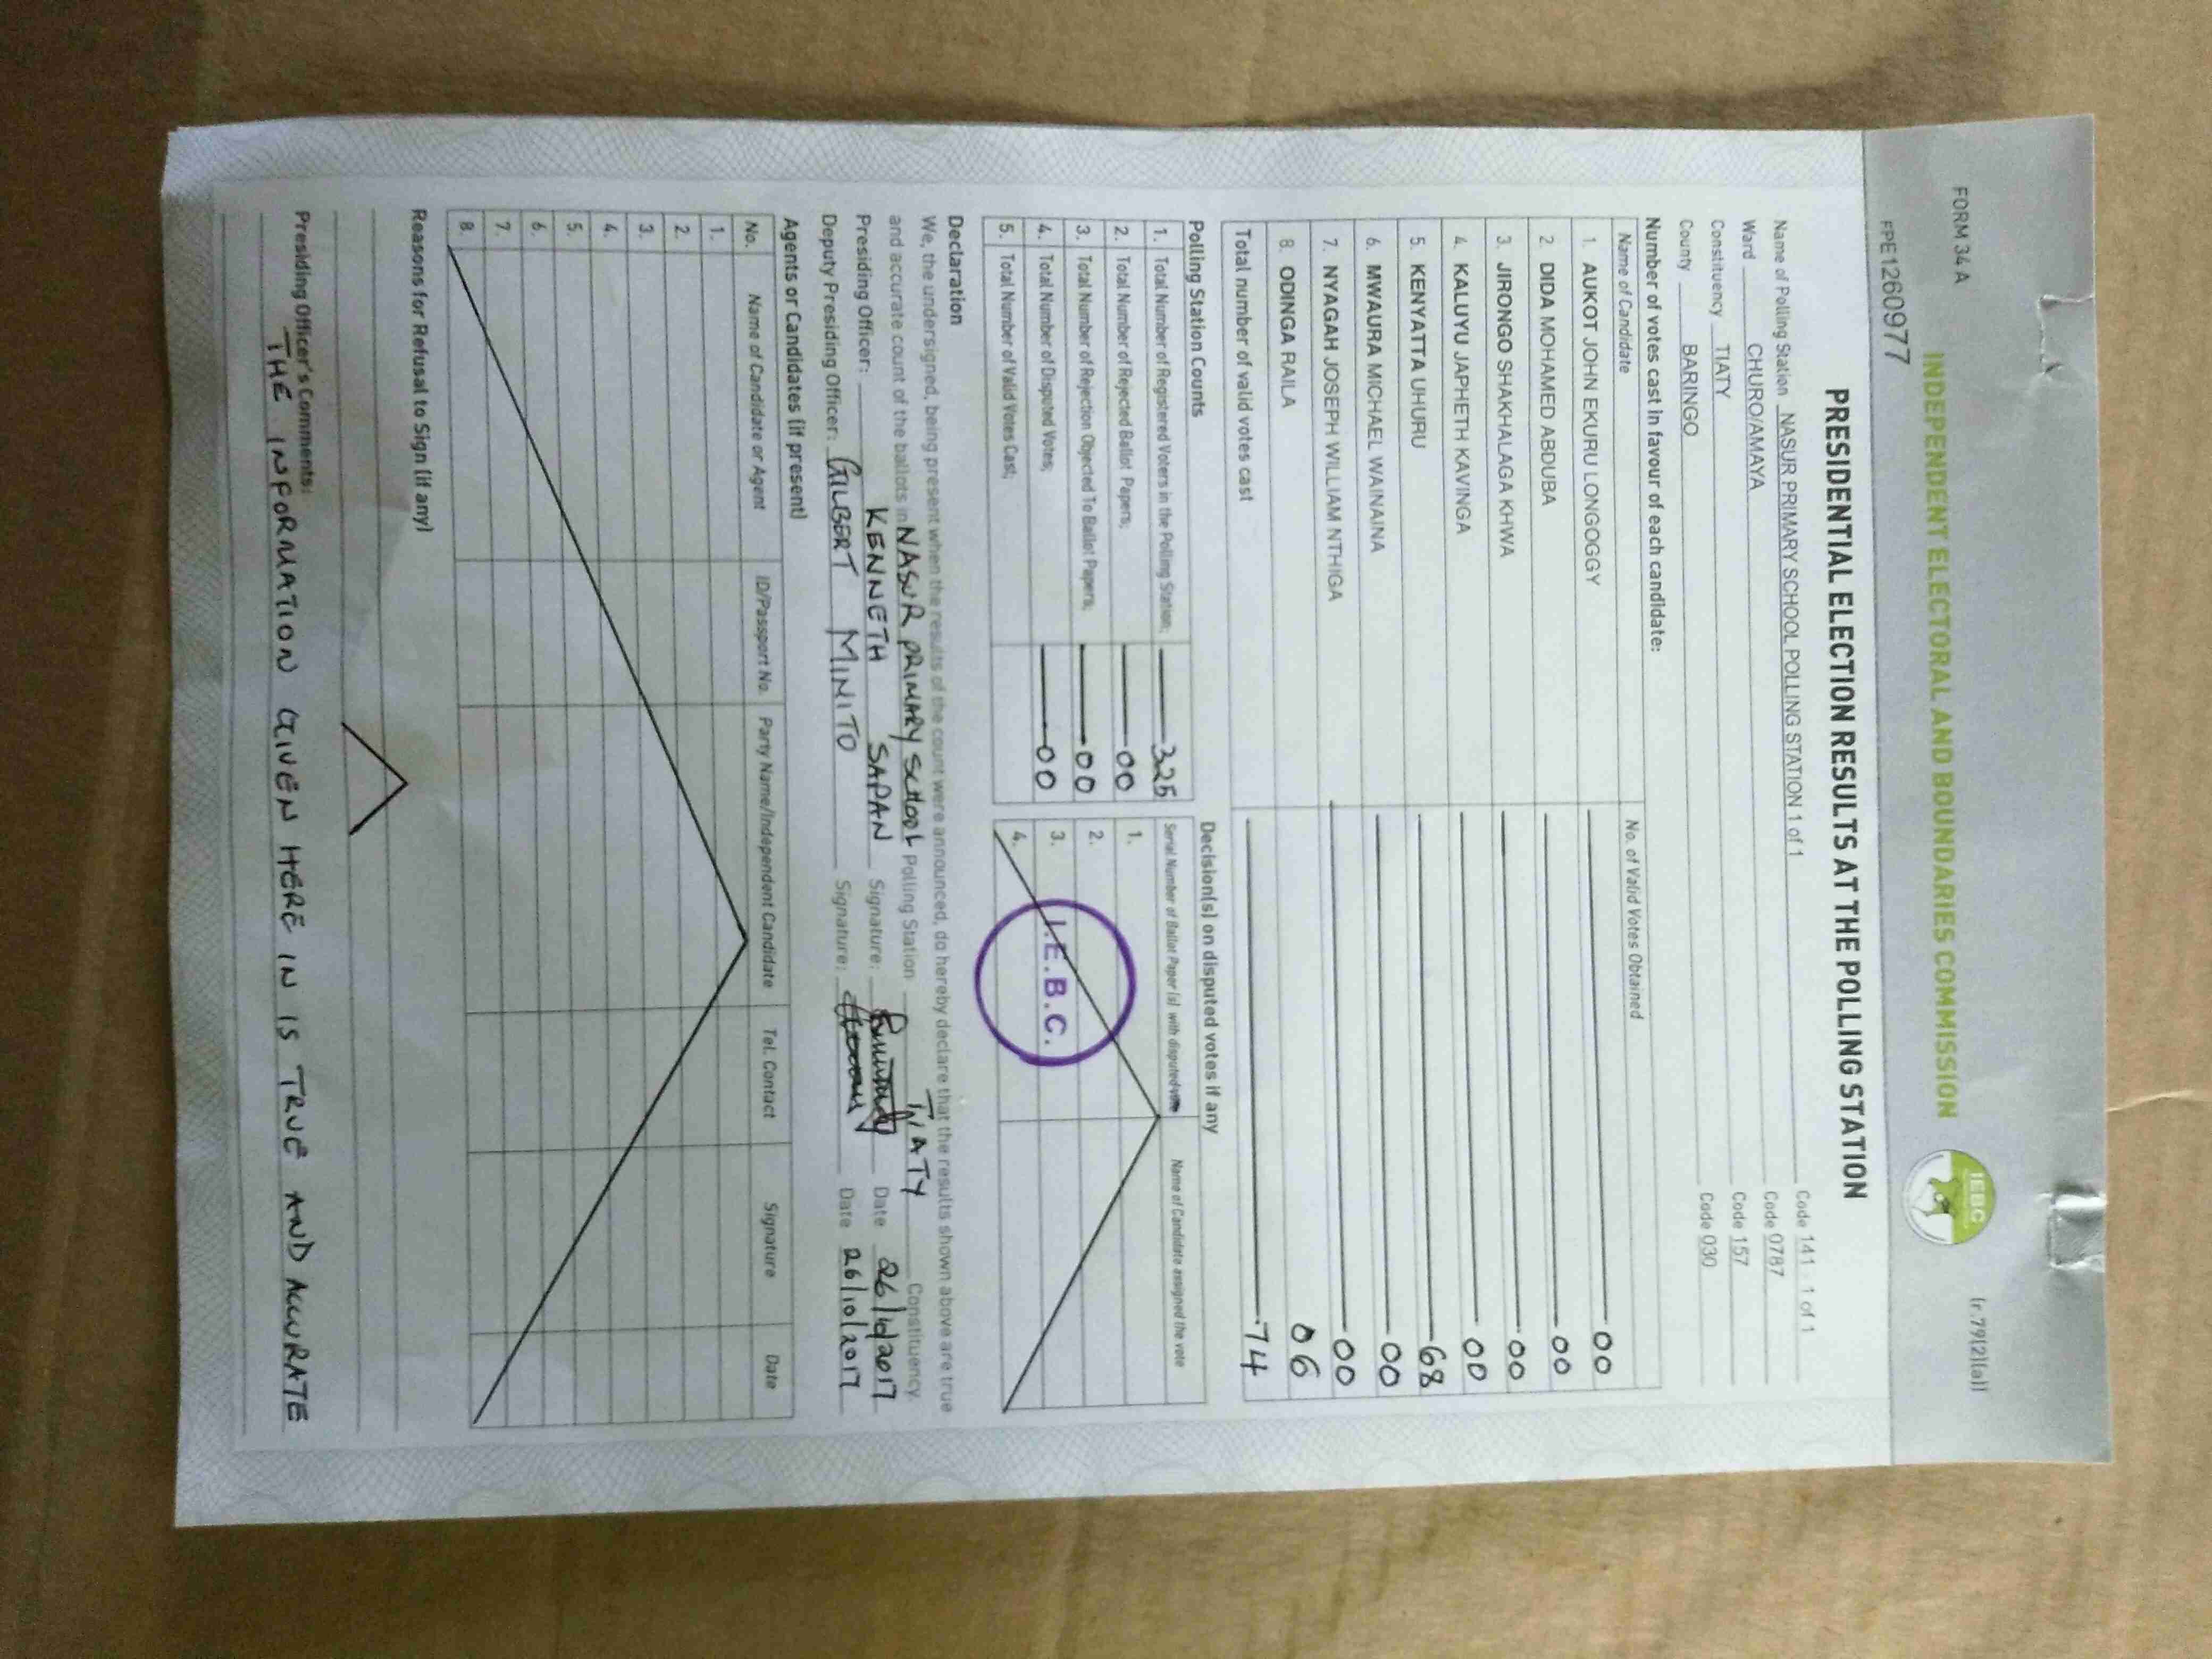 FORM 34 A
(r.79(2)(a))
INDEPENDENT ELECTORAL AND BOUNDARIES COMMISSION
IEBC
FPE1260977
PRESIDENTIAL ELECTION RESULTS AT THE POLLING STATION
Name of Polling Station NASUR PRIMARY SCHOOL POLLING STATION 1 of 1 Code 141 1 of 1
Ward CHURO/AMAYA Code 0787
Constituency TIATY Code 157
County BARINGO Code 030
Number of votes cast in favour of each candidate:
Name of Candidate No. of Valid Votes Obtained
1. AUKOT JOHN EKURU LONGOGGY 00
2. DIDA MOHAMED ABDUBA 00
3. JIRONGO SHAKHALAGA KHWA 00
4. KALUYU JAPHETH KAVINGA 00
5. KENYATTA UHURU 68
6. MWAURA MICHAEL WAINAINA 00
7. NYAGAH JOSEPH WILLIAM NTHIGA 00
8. ODINGA RAILA 06
Total number of valid votes cast 74
Polling Station Counts
1. Total Number of Registered Voters in the Polling Station; 325
2. Total Number of Rejected Ballot Papers; 00
3. Total Number of Rejection Objected To Ballot Papers; 00
4. Total Number of Disputed Votes; 00
5. Total Number of Valid Votes Cast;
Decision(s) on disputed votes if any
Serial Number of Ballot Paper (s) with disputed vote Name of Candidate assigned the vote
1.
2.
3.
4.
I.E.B.C.
Declaration
We, the undersigned, being present when the results of the count were announced, do hereby declare that the results shown above are true
and accurate count of the ballots in NASUR PRIMARY SCHOOL Polling Station TIATY Constituency.
Presiding Officer: KENNETH SAPAN Signature: Date 26/10/2017
Deputy Presiding Officer: GILBERT MINITO Signature: Date 26/10/2017
Agents or Candidates (if present)
No. Name of Candidate or Agent ID/Passport No. Party Name/Independent Candidate Tel. Contact Signature Date
1.
2.
3.
4.
5.
6.
7.
8.
Reasons for Refusal to Sign (if any)
Presiding Officer's Comments:
THE INFORMATION GIVEN HERE IN IS TRUE AND ACCURATE